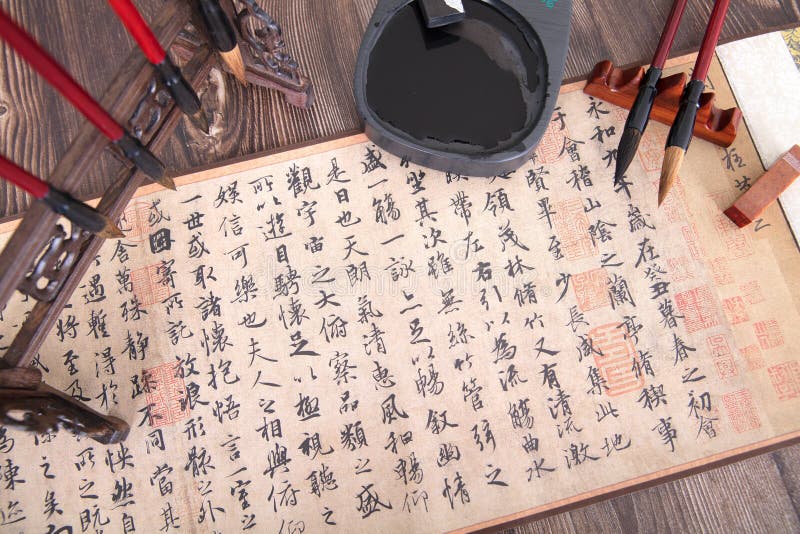 永和九年歲在癸丑暮春之初會
于會稽山陰之蘭亭脩稧事
賢畢至少長咸集此地
領茂林脩竹又有清流激
帶左右引以為流觴曲水
坐其次雖無絲竹管弦之
盛一觴一詠亦足以暢敘幽情
是日也天朗氣清惠風和暢仰
觀宇宙之大俯察品類之盛
所以遊目騁懷足以極視聽之
娛信可樂也夫人之相與俯仰
一世或取諸懷抱悟言一室之
或因寄所託放浪形骸之外
舍萬殊靜躁不同當其
遇暫得於怏然自
將至及所之既
之矣
為陳迹